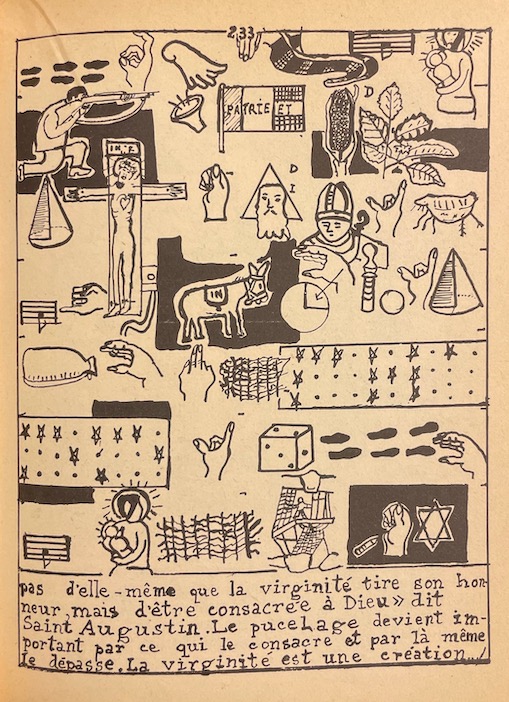 233
PATRIE ET
D
INRI
D
I
IN
pas d'elle-même que la virginité tire son hon-
neur, mais d'être consacrée à Dieu» dit
Saint Augustin. Le pucelage devient im-
portant par ce qui le consacre et par là même
le dépasse. La virginité est une création.../